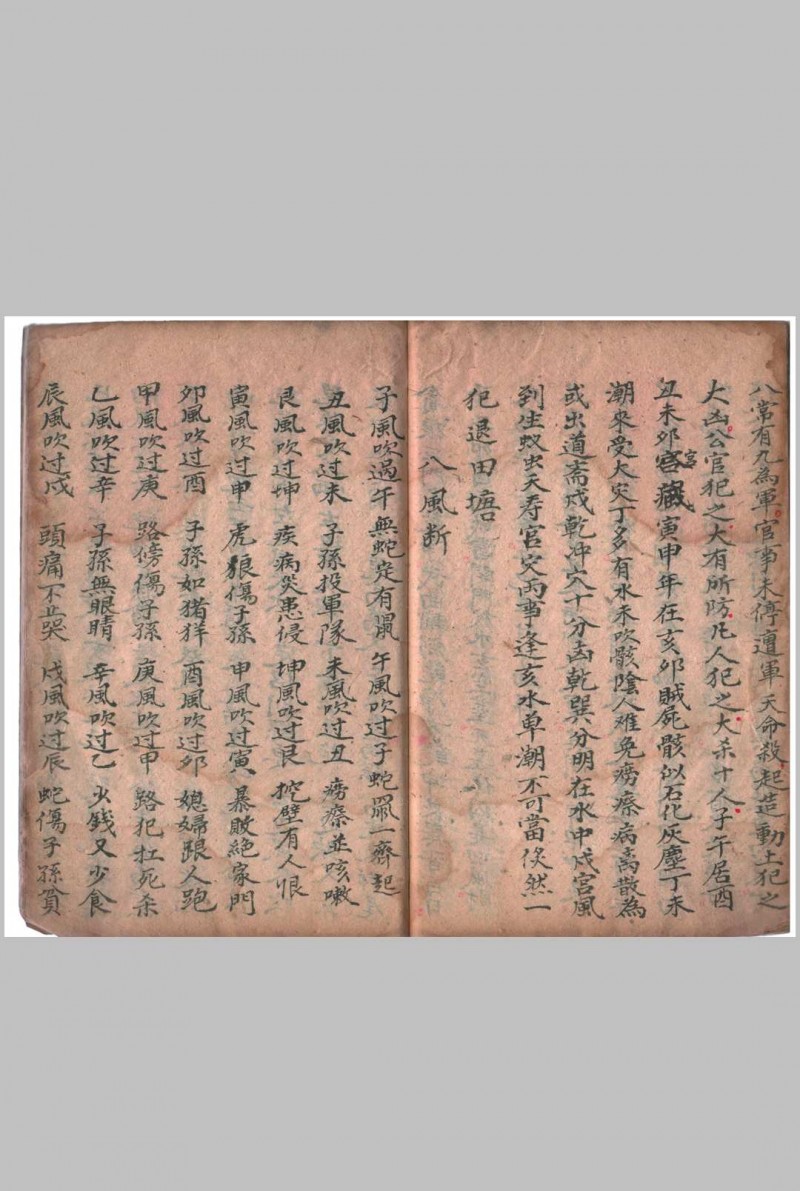 八常有九為軍官事未停遭軍天命殺起造動土犯之
大凶公官犯之大有所防凡人犯之大杀十人子午居酉
丑未卯宮藏寅申年在亥卯賊屍骸似石化灰塵丁未
潮來受大灾丁多有水未吹骸陰人难免癆瘵病离散為
或出道斋戍乾冲穴十分凶乾巽分明在水中戍宮風
到生蚁虫夭寿官灾两事逢亥水单潮不可當倐然一
犯退田塘
八風断
子風吹過午 無蛇定有鼠 午風吹过子 蛇鼠一齊起
丑風吹过未 子孫投軍隊 未風吹过丑 癆瘵並咳嗽
艮風吹过坤 疾病災患侵 坤風吹过艮 挖壁有人恨
寅風吹过甲 虎狼傷子孫 申風吹过寅 暴敗絕家門
卯風吹过酉 子孫如猪羊 酉風吹过卯 媳婦跟人跑
甲風吹过庚 路傍傷子孫 庚風吹过甲 路犯扛死杀
乙風吹过辛 子孫無眼睛 辛風吹过乙 少錢又少食
辰風吹过戍 頭痛不止哭 戍風吹过辰 蛇傷子孫貧